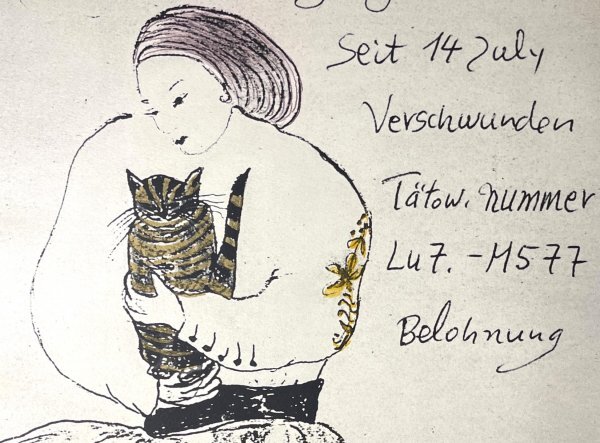 Seit 14 July
Verschwunden
Tätow. nummer
Lu7. -M577
Belohnung